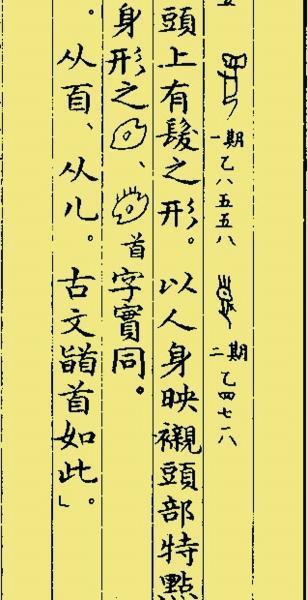 五
一期 乙八五五八
二期 乙四七一八
頭上有髮之形。以人身映襯頭部特點
身形之、首字實同。
。从𦣻、从儿。古文𦣻首如此」。